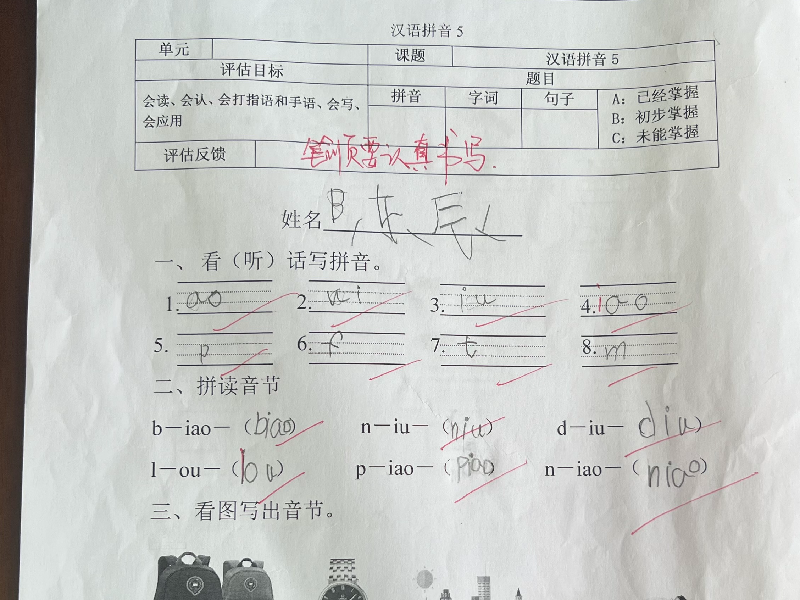 汉语拼音5
单元 课题 汉语拼音5
评估目标 题目
会读、会认、会打指语和手语、会写、会应用 拼音 字词 句子 A：已经掌握
B：初步掌握
C：未能掌握
评估反馈 笔顺要认真书写.
姓名
一、看（听）话写拼音。
1. ao 2. ui 3. iu 4. iao
5. p 6. f 7. t 8. m
二、拼读音节
b－iao－（biao） n－iu－（niu） d－iu－ diu
l－ou－（lou） p－iao－（piao） n－iao－（niao）
三、看图写出音节。